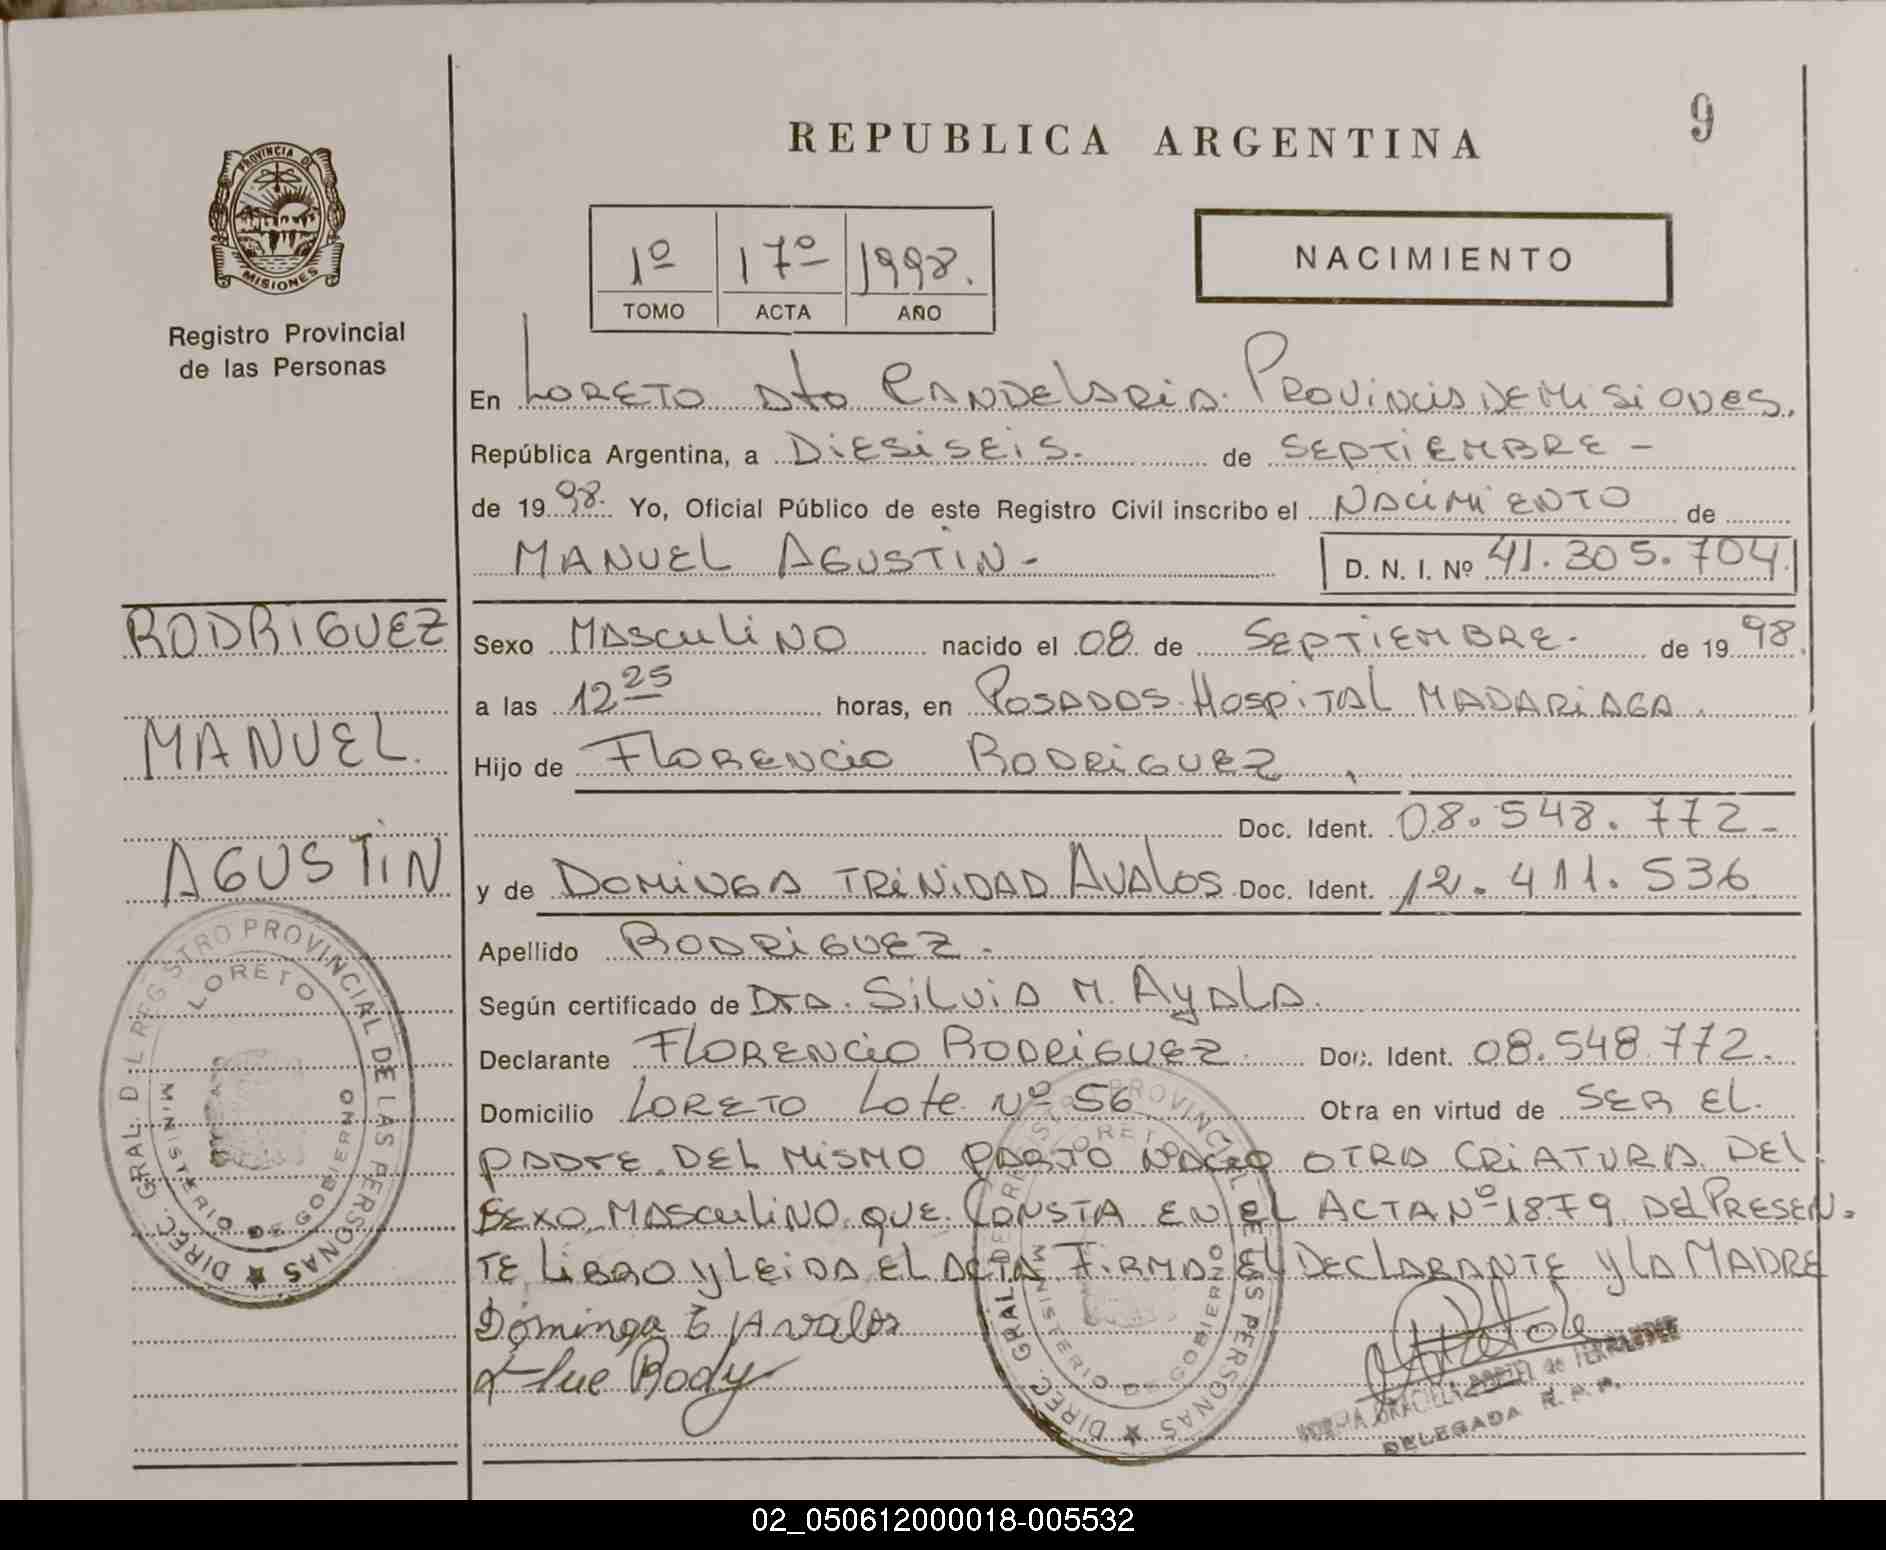 9
REPUBLICA ARGENTINA
PROVINCIA DE
MISIONES
Registro Provincial
de las Personas
1º 17º 1998.
TOMO ACTA AÑO
NACIMIENTO
En LORETO Dto CANDELARIA. PROVINCIA DE MISIONES.
República Argentina, a DIESISEIS. de SEPTIEMBRE -
de 1998. Yo, Oficial Público de este Registro Civil inscribo el NACIMIENTO de
MANUEL AGUSTIN -
D. N. I. Nº 41.305.704
RODRIGUEZ
MANUEL.
AGUSTIN
Sexo MASCULINO nacido el 08 de SEPTIEMBRE. de 1998.
a las 12 25 horas, en POSADAS. HOSPITAL MADARIAGA.
Hijo de FLORENCIO RODRIGUEZ
Doc. Ident. 08.548.772 -
y de DOMINGA TRINIDAD AVALOS Doc. Ident. 12.411.536
Apellido RODRIGUEZ -
Según certificado de Dra. SILVIA M. AYALA.
Declarante FLORENCIO RODRIGUEZ. Doc. Ident. 08.548.772.
Domicilio LORETO Lote Nº 56 Obra en virtud de SER EL.
PADRE. DEL MISMO PARTO NACIO OTRA CRIATURA DEL
SEXO MASCULINO QUE CONSTA EN EL ACTA Nº 1879 DEL PRESEN-
TE LIBRO Y LEIDA EL ACTA FIRMA EL DECLARANTE Y LA MADRE
Dominga T Avalos
DIREC. GRAL. D L REGISTRO PROVINCIAL DE LAS PERSONAS
LORETO
MINISTERIO DE GOBIERNO
DIREC. GRAL. DE REGISTRO PROVINCIAL DE LAS PERSONAS
LORETO
MINISTERIO DE GOBIERNO
DELEGADA R. P. P.
02_050612000018-005532